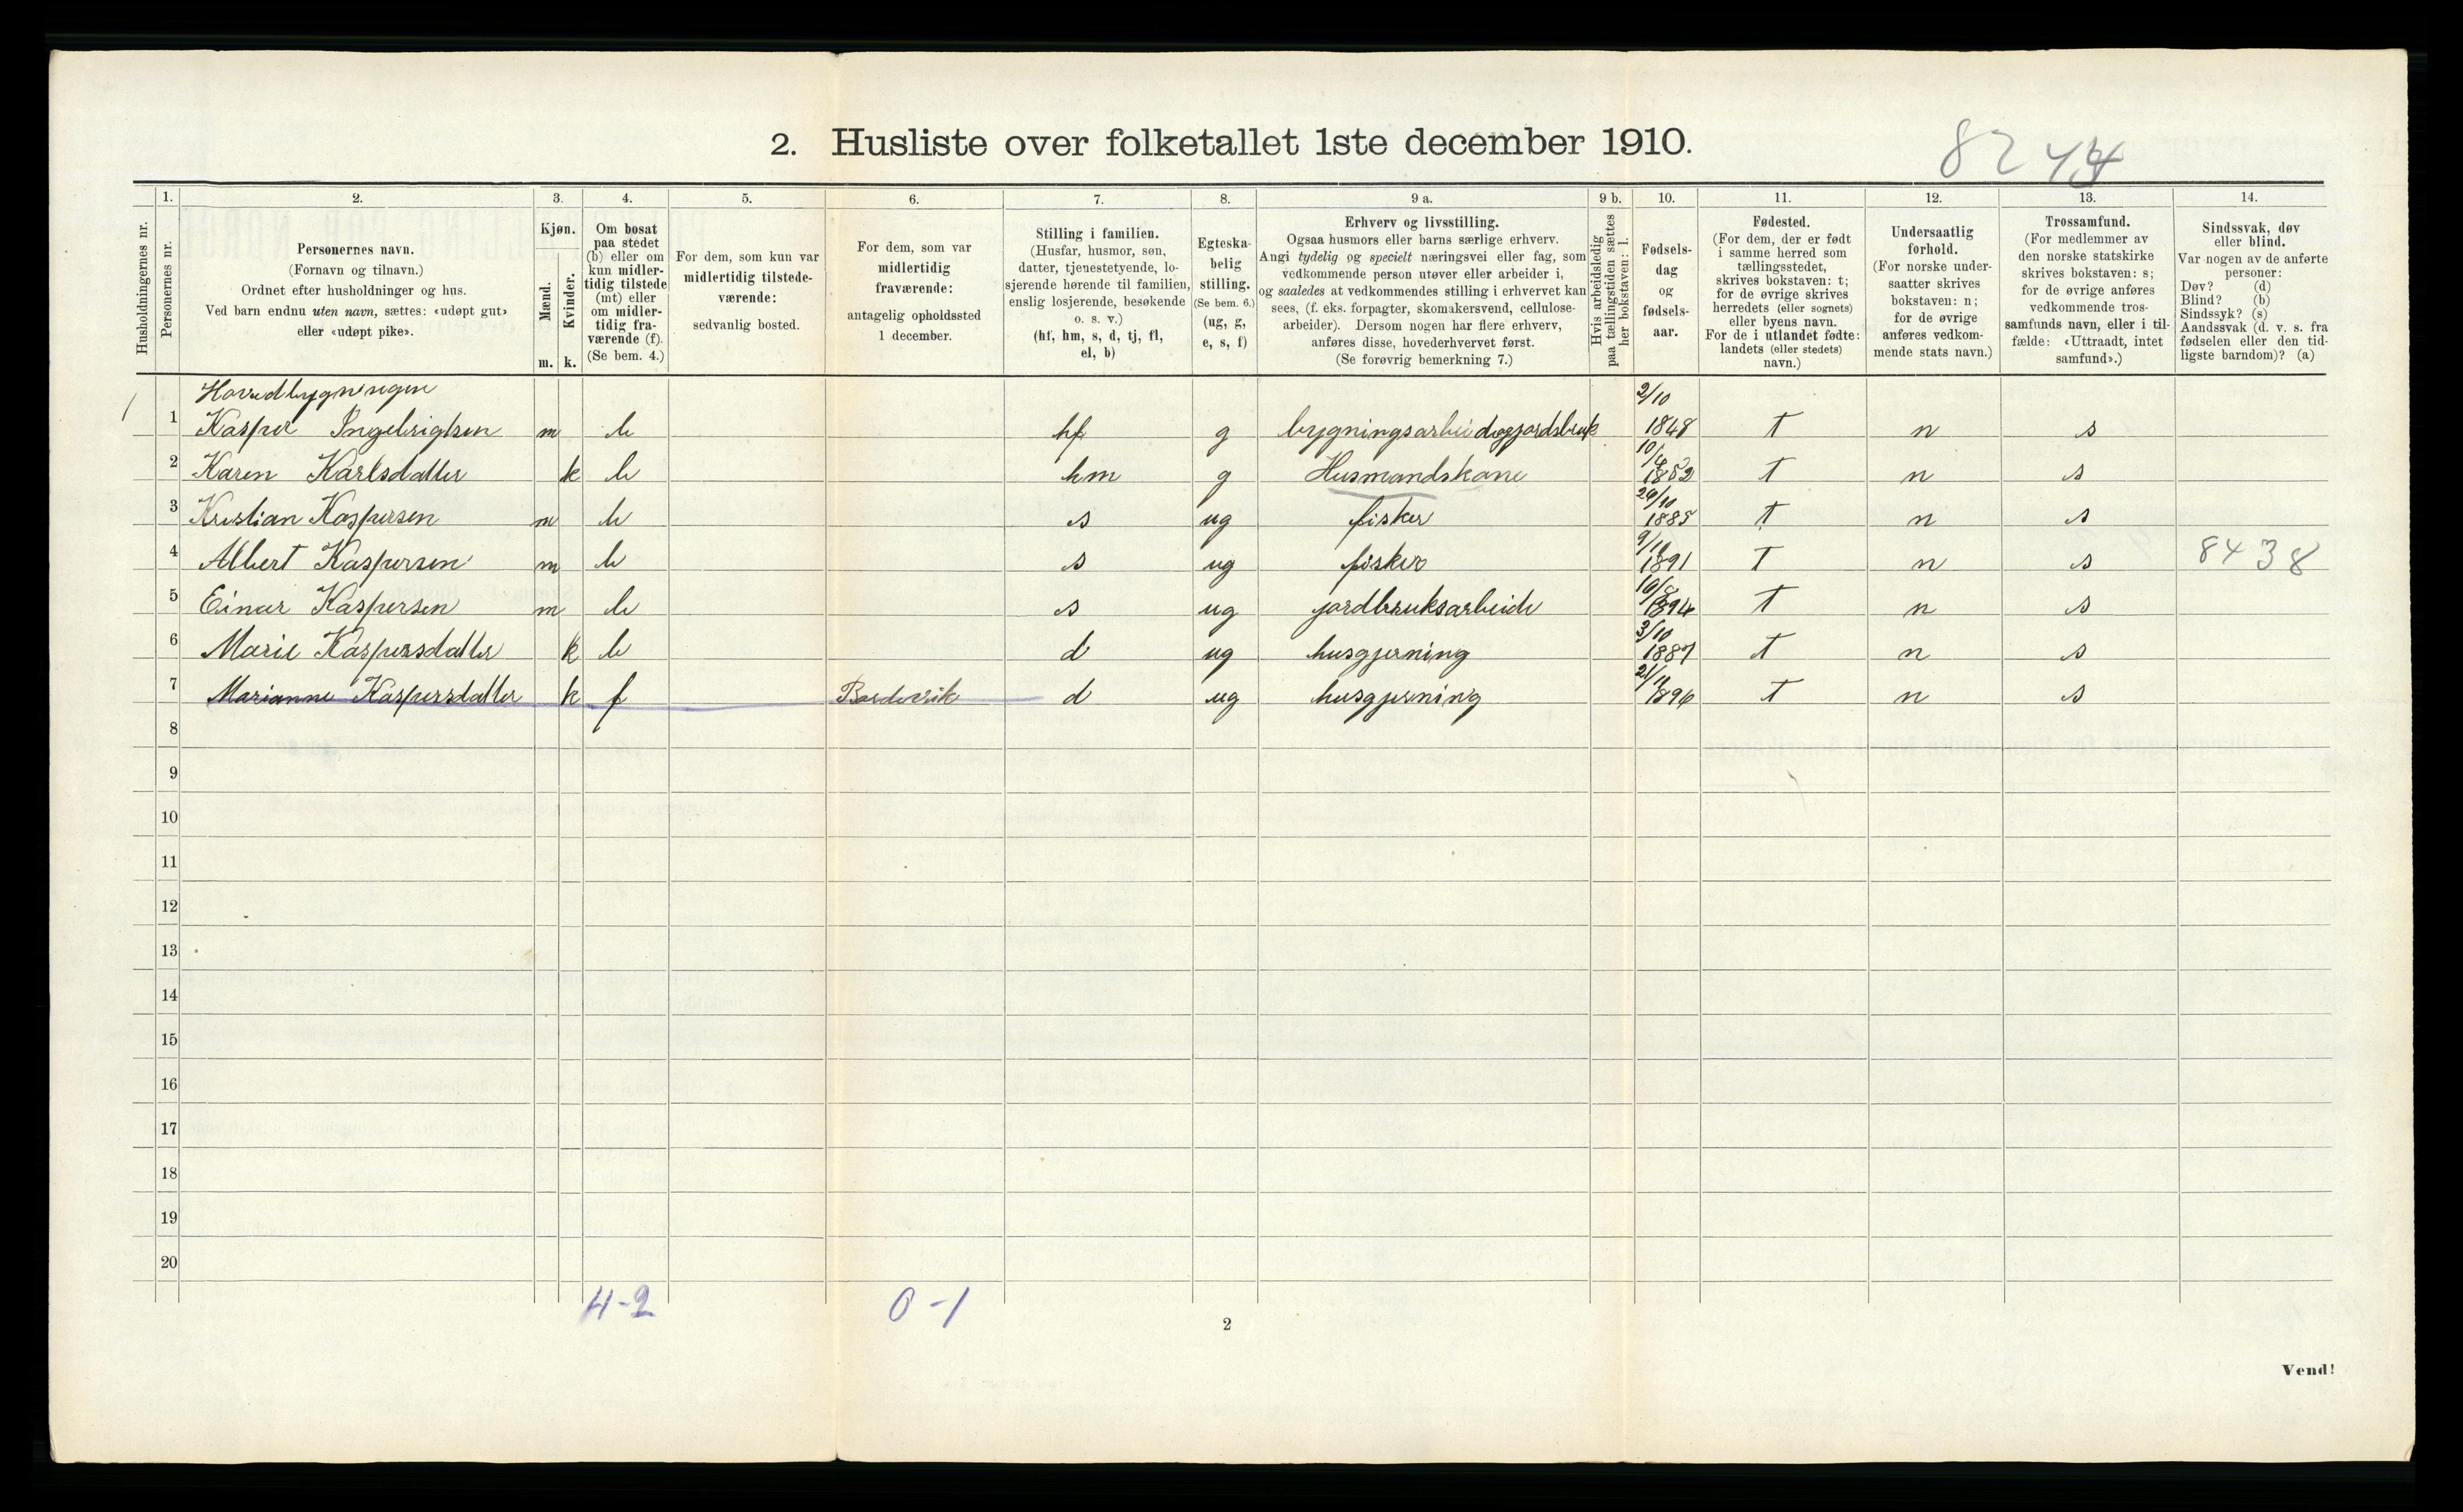 2. Husliste over folketallet 1ste december 1910.
Husholdningernes nr.
1.
Personernes nr.
2.
Personernes navn.
(Fornavn og tilnavn.)
Ordnet efter husholdninger og hus.
Ved barn endnu uten navn, sættes: «udøpt gut»
eller «udøpt pike».
3.
Kjøn.
Mænd.
m.
Kvinder.
k.
4.
Om bosat
paa stedet
(b) eller om
kun midler-
tidig tilstede
(mt) eller
om midler-
tidig fra-
værende (f).
(Se bem. 4.)
5.
For dem, som kun var
midlertidig tilstede-
værende:
sedvanlig bosted.
6.
For dem, som var
midlertidig
fraværende:
antagelig opholdssted
1 december.
7.
Stilling i familien.
(Husfar, husmor, søn,
datter, tjenestetyende, lo-
sjerende hørende til familien,
enslig losjerende, besøkende
o. s. v.)
(hf, hm, s, d, tj, fl,
el, b)
8.
Egteska-
belig
stilling.
(Se bem. 6.)
(ug, g,
e, s, f)
9 a.
Erhverv og livsstilling.
Ogsaa husmors eller barns særlige erhverv.
Angi tydelig og specielt næringsvei eller fag, som
vedkommende person utøver eller arbeider i,
og saaledes at vedkommendes stilling i erhvervet kan
sees, (f. eks. forpagter, skomakersvend, cellulose-
arbeider). Dersom nogen har flere erhverv,
anføres disse, hovederhvervet først.
(Se forøvrig bemerkning 7.)
9 b.
Hvis arbeidsledig
paa tællingstiden sættes
her bokstaven: l.
10.
Fødsels-
dag
og
fødsels-
aar.
11.
Fødested.
(For dem, der er født
i samme herred som
tællingsstedet,
skrives bokstaven: t;
for de øvrige skrives
herredets (eller sognets)
eller byens navn.
For de i utlandet fødte:
landets (eller stedets)
navn.)
12.
Undersaatlig
forhold.
(For norske under-
saatter skrives
bokstaven: n;
for de øvrige
anføres vedkom-
mende stats navn.)
13.
Trossamfund.
(For medlemmer av
den norske statskirke
skrives bokstaven: s;
for de øvrige anføres
vedkommende tros-
samfunds navn, eller i til-
fælde: «Uttraadt, intet
samfund».)
14.
Sindssvak, døv
eller blind.
Var nogen av de anførte
personer:
Døv? (d)
Blind? (b)
Sindssyk? (s)
Aandssvak (d. v. s. fra
fødselen eller den tid-
ligste barndom)? (a)
Hovedbygningen
1 1 Kasper Ingebrigtsen m b hf g bygningsarbeid og jordsbruk 2/10 1848 t n s
2 Karen Karlsdatter k b hm g Husmandskone 1852 t n s
3 Kristian Kaspersen m b s ug fisker 1885 t n s
4 Albert Kaspersen m b s ug fisker 1891 t n s 8438
5 Einar Kaspersen m b s ug jordbruksarbeide 1894 t n s
6 Marie Kaspersdatter k b d ug husgjerning 3/10 1887 t n s
7 Marianne Kaspersdatter k f d ug husgjerning 1896 t n s
8
9
10
11
12
13
14
15
16
17
18
19
20
4-2 0-1
2
Vend!